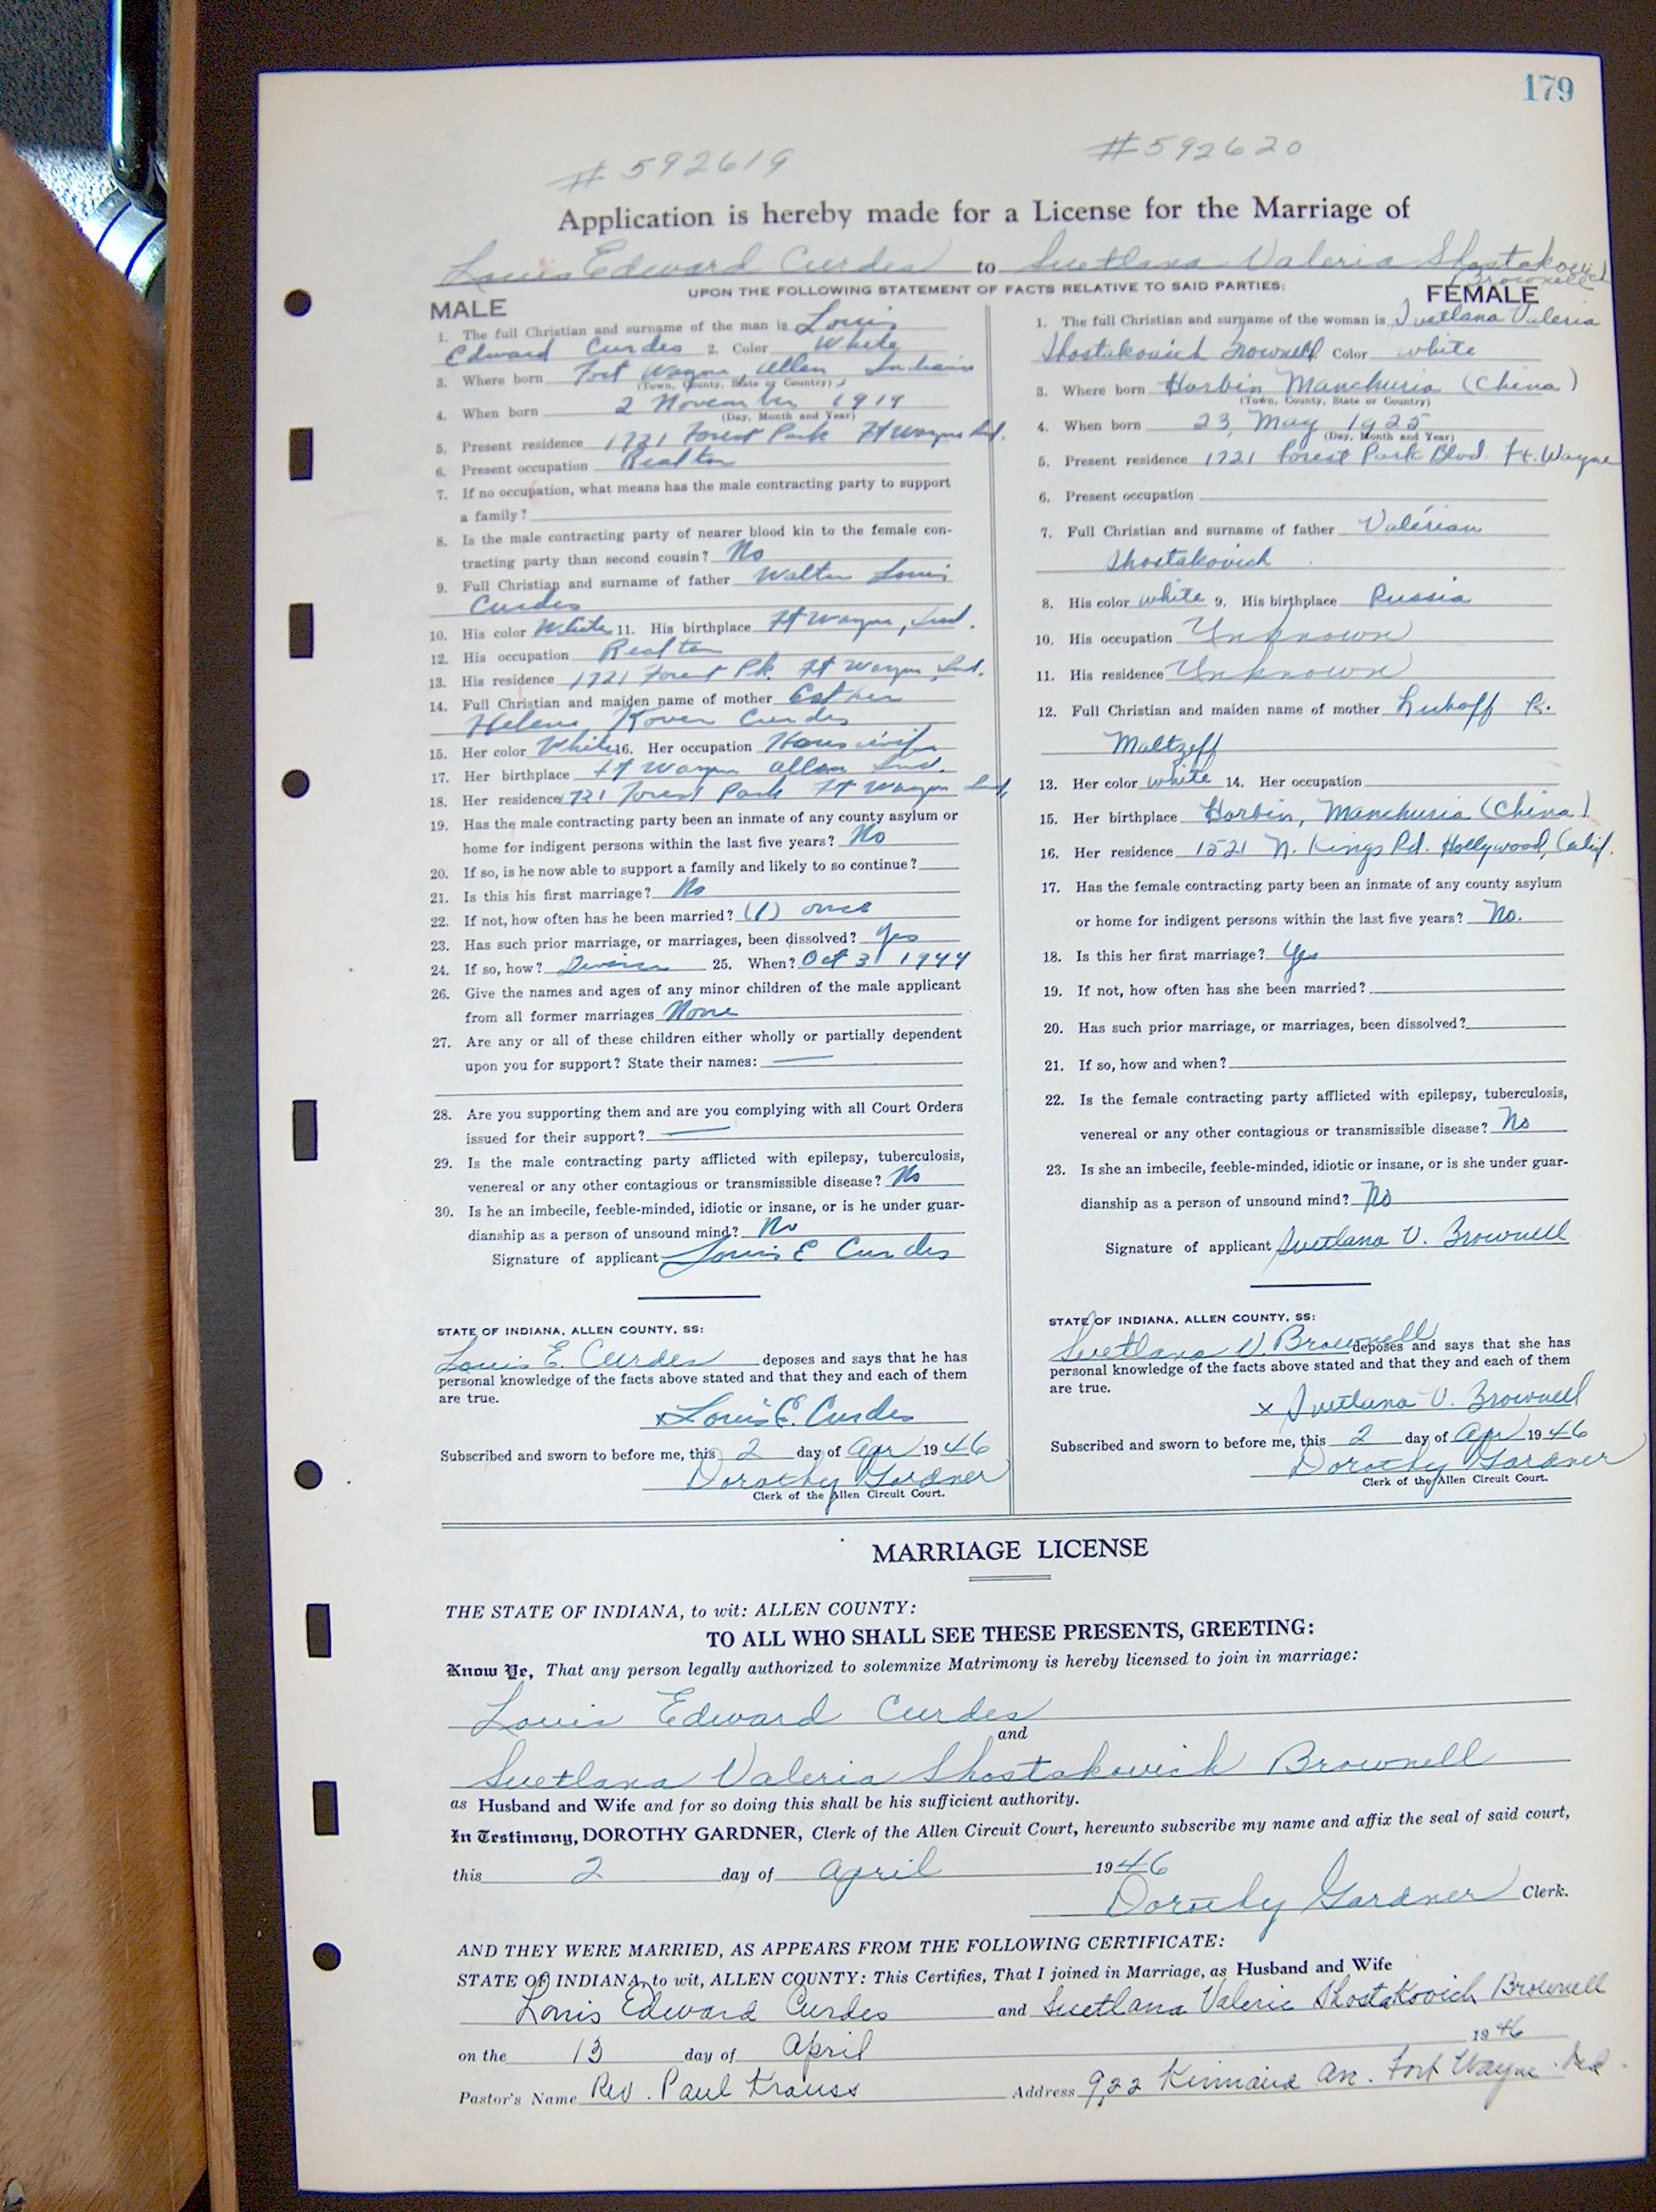 179
#592619
#592620
Application is hereby made for a License for the Marriage of
Louis Edward Curdes to Svetlana Valeria Shostakovich
Brownell
UPON THE FOLLOWING STATEMENT OF FACTS RELATIVE TO SAID PARTIES:
MALE
1. The full Christian and surname of the man is Louis
Edward Curdes 2. Color White
3. Where born Fort Wayne, Allen Indiana
(Town, County, State or Country)
4. When born 2 November 1919
(Day, Month and Year)
5. Present residence 1721 Forest Park Ft Wayne Ind.
6. Present occupation Realtor
7. If no occupation, what means has the male contracting party to support
a family?
8. Is the male contracting party of nearer blood kin to the female con-
tracting party than second cousin? No
9. Full Christian and surname of father Walter Louis
Curdes
10. His color White 11. His birthplace Ft Wayne, Ind.
12. His occupation Realtor
13. His residence 1721 Forest Pk. Ft Wayne Ind.
14. Full Christian and maiden name of mother Esther
Helene Kover Curdes
15. Her color White 16. Her occupation Housewife
17. Her birthplace Ft Wayne Allen Ind.
18. Her residence 1721 Forest Park Ft Wayne Ind,
19. Has the male contracting party been an inmate of any county asylum or
home for indigent persons within the last five years? No
20. If so, is he now able to support a family and likely to so continue?
21. Is this his first marriage? No
22. If not, how often has he been married? (1) once
23. Has such prior marriage, or marriages, been dissolved? Yes
24. If so, how? Divorce 25. When? Oct 3 1944
26. Give the names and ages of any minor children of the male applicant
from all former marriages None
27. Are any or all of these children either wholly or partially dependent
upon you for support? State their names: —
28. Are you supporting them and are you complying with all Court Orders
issued for their support? —
29. Is the male contracting party afflicted with epilepsy, tuberculosis,
venereal or any other contagious or transmissible disease? No
30. Is he an imbecile, feeble-minded, idiotic or insane, or is he under guar-
dianship as a person of unsound mind? No
Signature of applicant Louis E Curdes
STATE OF INDIANA, ALLEN COUNTY, SS:
Louis E. Curdes deposes and says that he has
personal knowledge of the facts above stated and that they and each of them
are true.
x Louis E. Curdes
Subscribed and sworn to before me, this 2 day of Apr 1946
Dorothy Gardner
Clerk of the Allen Circuit Court.
FEMALE
1. The full Christian and surname of the woman is Svetlana Valeria
Shostakovich Brownell Color white
3. Where born Harbin Manchuria (China)
(Town, County, State or Country)
4. When born 23, May 1925
(Day, Month and Year)
5. Present residence 1721 Forest Park Blvd. Ft. Wayne
6. Present occupation
7. Full Christian and surname of father Valerian
Shostakovich
8. His color white 9. His birthplace Russia
10. His occupation Unknown
11. His residence Unknown
12. Full Christian and maiden name of mother
Maltzeff
13. Her color white 14. Her occupation
15. Her birthplace Harbin, Manchuria (China)
16. Her residence 1521 N. Kings Rd. Hollywood, Calif.
17. Has the female contracting party been an inmate of any county asylum
or home for indigent persons within the last five years? No.
18. Is this her first marriage? Yes
19. If not, how often has she been married?
20. Has such prior marriage, or marriages, been dissolved?
21. If so, how and when?
22. Is the female contracting party afflicted with epilepsy, tuberculosis,
venereal or any other contagious or transmissible disease? No
23. Is she an imbecile, feeble-minded, idiotic or insane, or is she under guar-
dianship as a person of unsound mind? No
Signature of applicant Svetlana V. Brownell
STATE OF INDIANA, ALLEN COUNTY, SS:
Svetlana V. Brownell deposes and says that she has
personal knowledge of the facts above stated and that they and each of them
are true.
x Svetlana V. Brownell
Subscribed and sworn to before me, this 2 day of Apr 1946
Dorothy Gardner
Clerk of the Allen Circuit Court.
MARRIAGE LICENSE
THE STATE OF INDIANA, to wit: ALLEN COUNTY:
TO ALL WHO SHALL SEE THESE PRESENTS, GREETING:
Know Ye, That any person legally authorized to solemnize Matrimony is hereby licensed to join in marriage:
Louis Edward Curdes
and
Svetlana Valeria Shostakovich Brownell
as Husband and Wife and for so doing this shall be his sufficient authority.
In Testimony, DOROTHY GARDNER, Clerk of the Allen Circuit Court, hereunto subscribe my name and affix the seal of said court,
this 2 day of April 1946
Dorothy Gardner Clerk.
AND THEY WERE MARRIED, AS APPEARS FROM THE FOLLOWING CERTIFICATE:
STATE OF INDIANA, to wit, ALLEN COUNTY: This Certifies, That I joined in Marriage, as Husband and Wife
Louis Edward Curdes and Svetlana Valeria Shostakovich Brownell
on the 13 day of April 1946
Pastor's Name Rev. Paul Krauss Address 922 Kinnaird Av. Fort Wayne Ind.